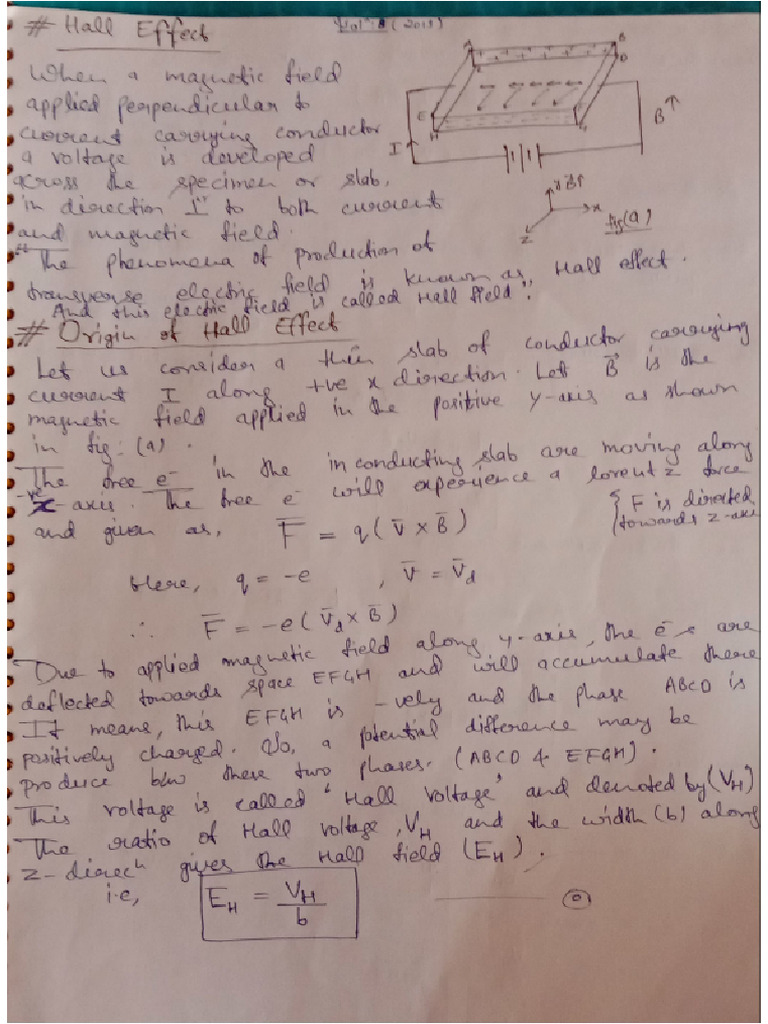 # Hall Effect
(2018)
When a magnetic field
applied perpendicular to
current carrying conductor
a voltage is developed
across the specimen or slab,
in direction I" to both current
and magnetic field.
"The phenomena of production of
transverse electric field is known as, Hall effect.
And this electric field is called Hall field".
A
B
D
E
H
I
B ↑
B ↑
x
z
fig(a)
# Origin of Hall Effect
Let us consider a thin slab of conductor carrying
current I along +ve x direction. Let B⃗ is the
magnetic field applied in the positive y-axis as shown
in fig: (a).
The free e⁻ in the in conducting slab are moving along
-ve x-axis. The free e⁻ will experience a lorentz force
and given as, F̄ = q(V̄ × B̄)
{ F is directed
towards z-axis
Here, q = -e , V̄ = V̄d
∴ F̄ = -e(V̄d × B̄)
Due to applied magnetic field along y-axis, the e⁻s are
deflected towards space EFGH and will accumulate there
It means, this EFGH is -vely and the phase ABCD is
positively charged. So, a potential difference may be
produce b/w these two phases. (ABCD & EFGH).
This voltage is called 'Hall Voltage' and denoted by (VH)
The ratio of Hall voltage, VH and the width (b) along
z-direcⁿ gives the Hall field (EH).
i.e, EH = VH / b